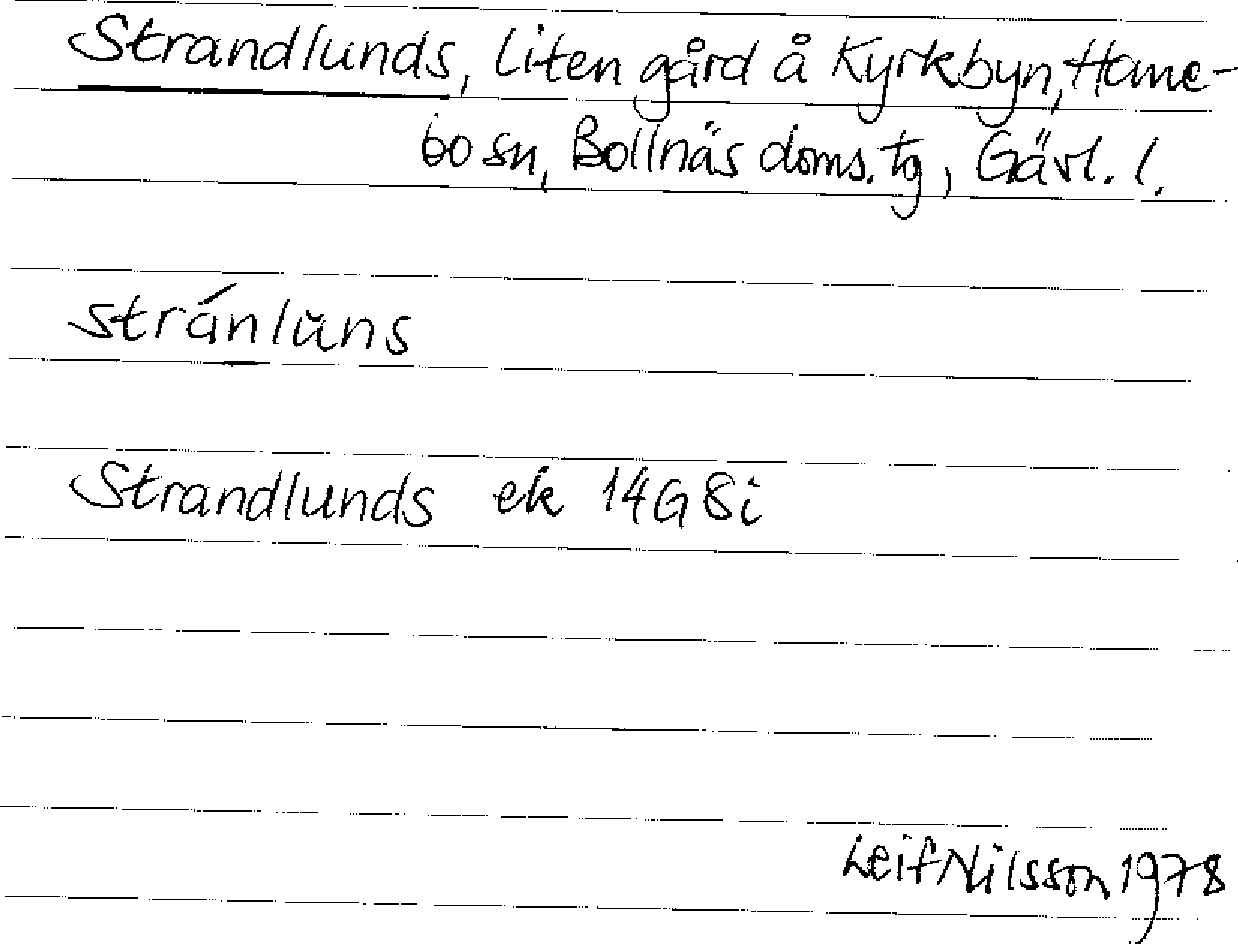 Strandlunds, liten gård å Kyrkbyn, Hane-
bo sn, Bollnäs doms. tg, Gävl. l.
stránlŭns
Strandlunds ek 14G 8i
Leif Nilsson 1978